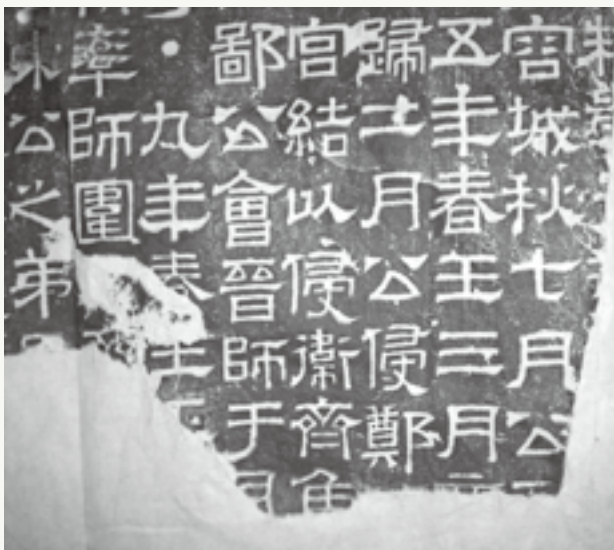 容城秋七月公
五年春王三月
歸二月公侵鄭
宮結以侵衛齊侯
鄙公會晉師于
・九年春王
率師圍
公之弟